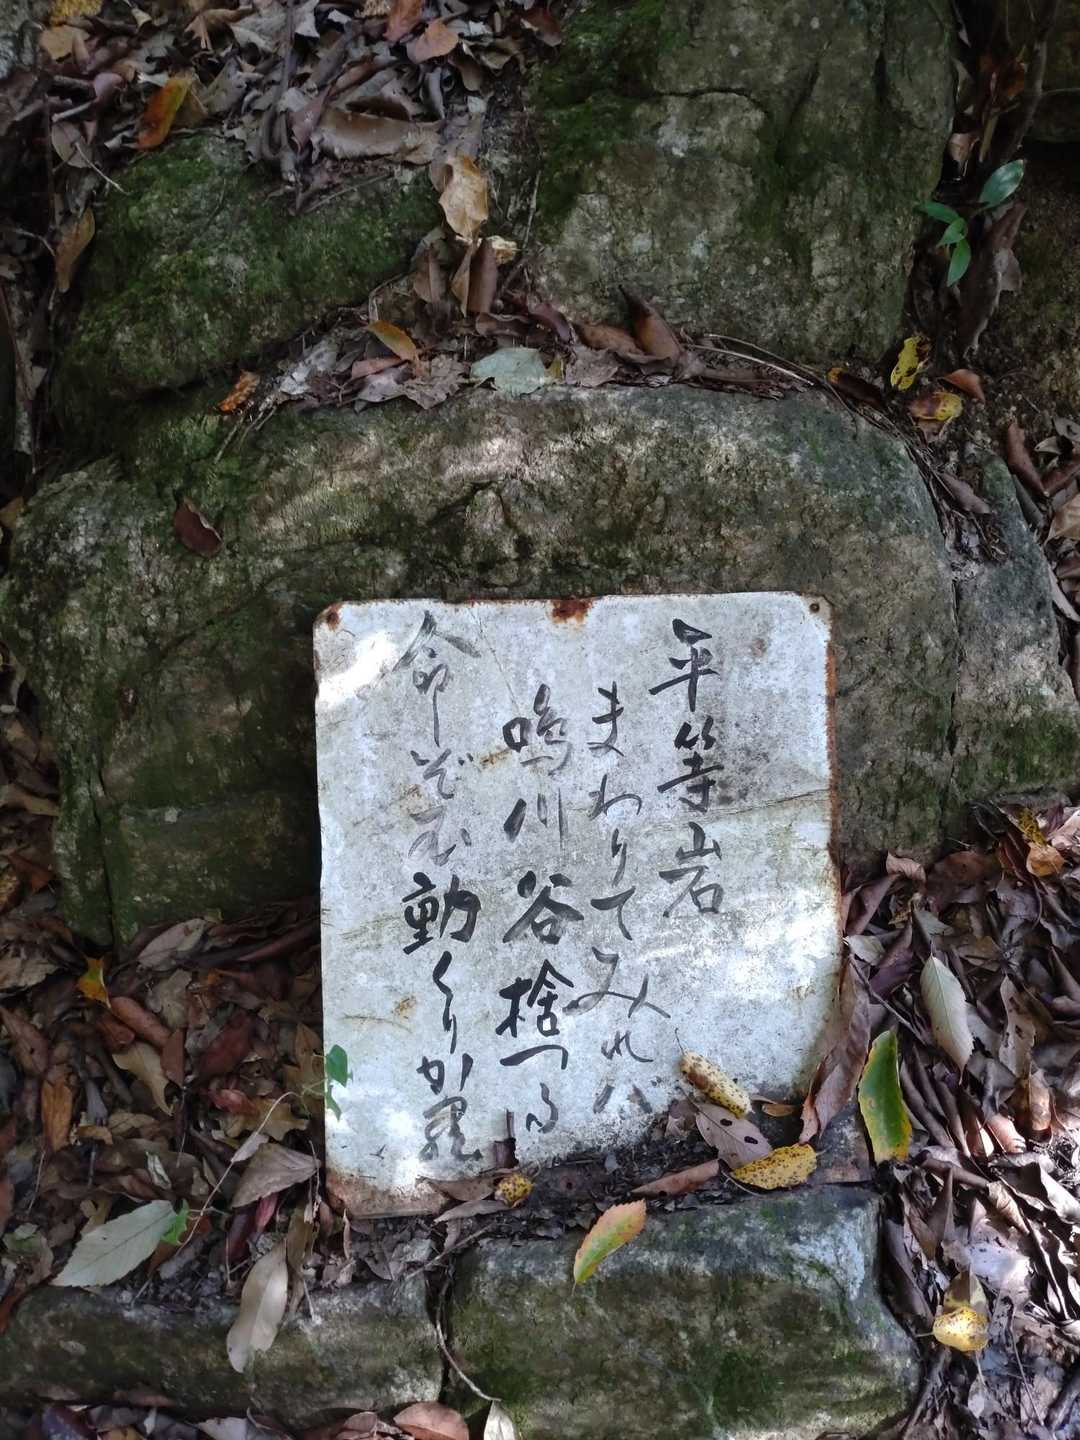 平等岩
まわりてみれバ
鳴川谷捨つる
命ぞ不動くりか羅